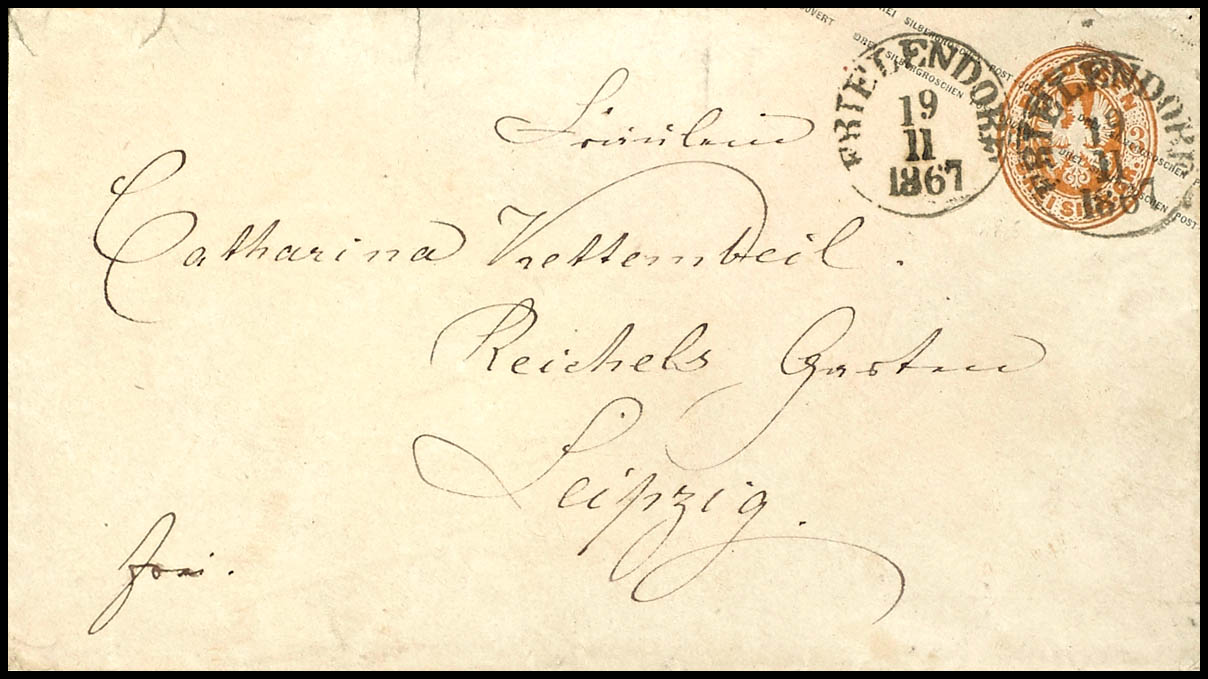 DREI SILBERGROSCHEN POST
FRIELENDORF
19
11
1867
FRIELENDORF
19
11
1867
Fräulein
Catharina Kettembeil.
Reichels Garten
Leipzig.
frei.